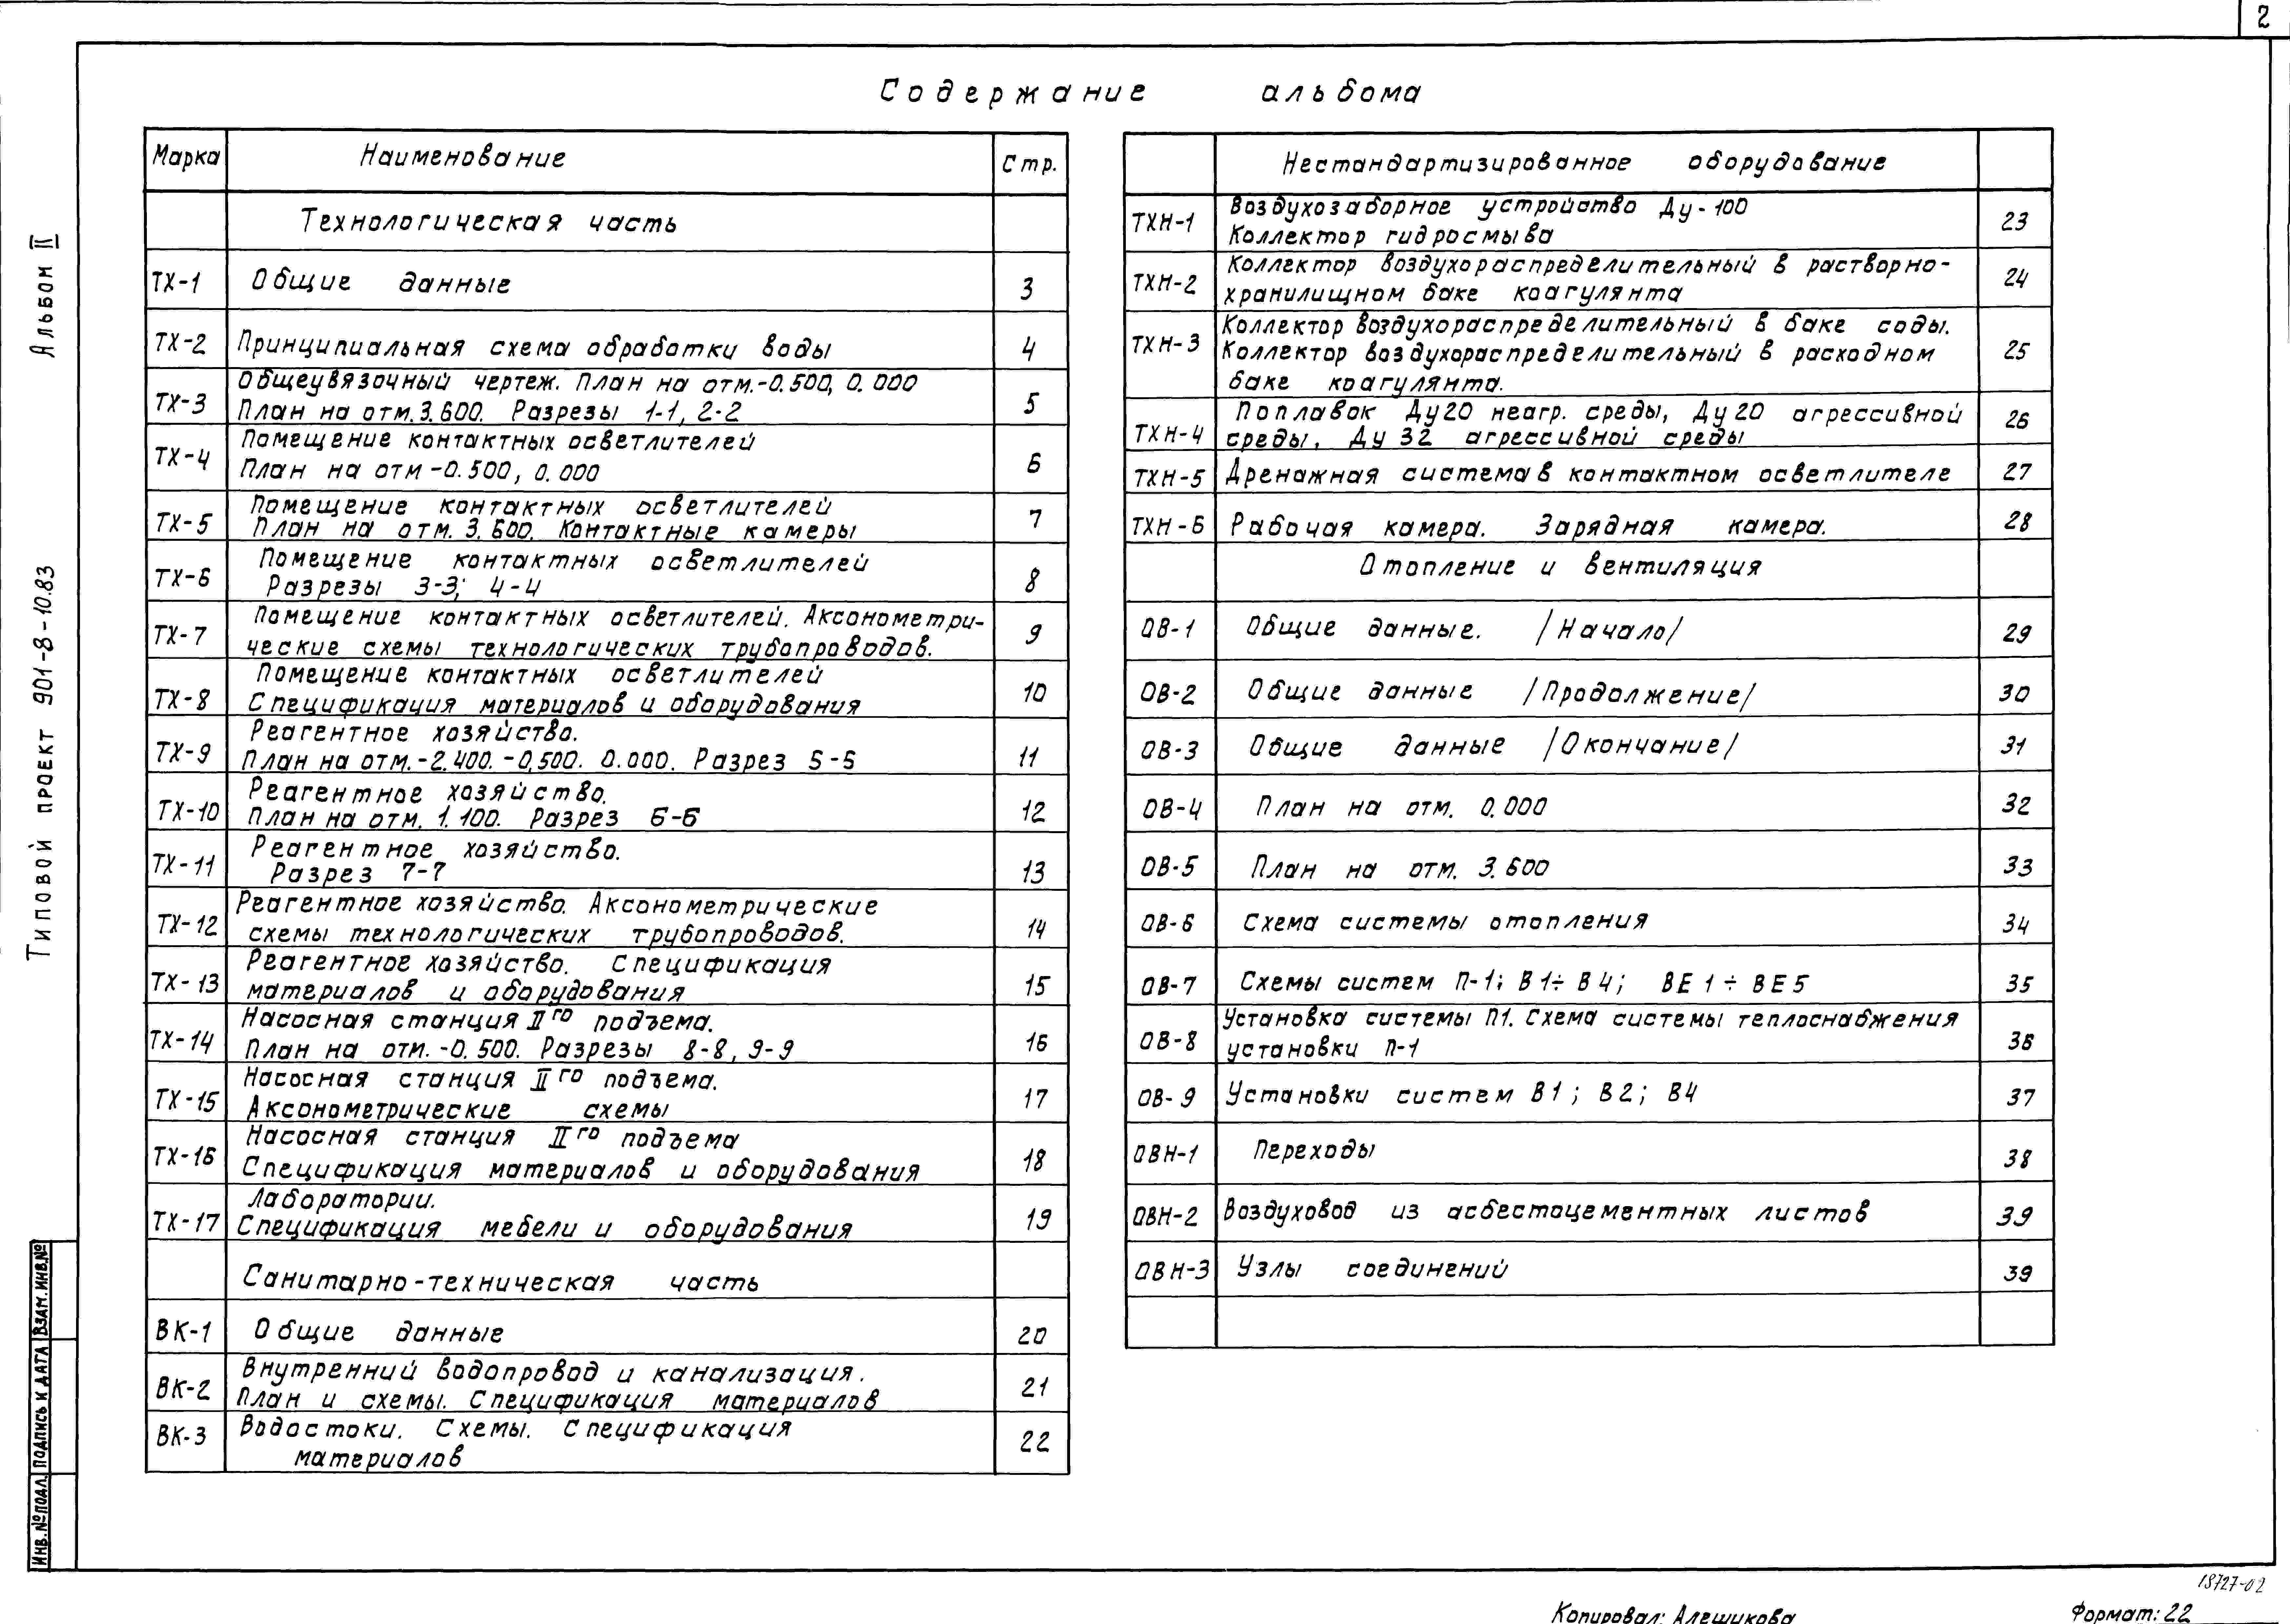 2
Содержание альбома
Марка Наименование Стр.
Технологическая часть
ТХ-1 Общие данные 3
ТХ-2 Принципиальная схема обработки воды 4
ТХ-3 Общеувязочный чертеж. План на отм.-0.500, 0.000
План на отм.3.600. Разрезы 1-1, 2-2 5
ТХ-4 Помещение контактных осветлителей
План на отм -0.500, 0.000 6
ТХ-5 Помещение контактных осветлителей
План на отм. 3.600. Контактные камеры 7
ТХ-6 Помещение контактных осветлителей
Разрезы 3-3; 4-4 8
ТХ-7 Помещение контактных осветлителей. Аксонометри-
ческие схемы технологических трубопроводов. 9
ТХ-8 Помещение контактных осветлителей
Спецификация материалов и оборудования 10
ТХ-9 Реагентное хозяйство.
План на отм.-2.400. -0,500. 0.000. Разрез 5-5 11
ТХ-10 Реагентное хозяйство.
План на отм. 1.100. Разрез 6-6 12
ТХ-11 Реагентное хозяйство.
Разрез 7-7 13
ТХ-12 Реагентное хозяйство. Аксонометрические
схемы технологических трубопроводов. 14
ТХ-13 Реагентное хозяйство. Спецификация
материалов и оборудования 15
ТХ-14 Насосная станция II го подъема.
План на отм. -0.500. Разрезы 8-8, 9-9 16
ТХ-15 Насосная станция II го подъема.
Аксонометрические схемы 17
ТХ-16 Насосная станция II го подъема
Спецификация материалов и оборудования 18
ТХ-17 Лаборатории.
Спецификация мебели и оборудования 19
Санитарно-техническая часть
ВК-1 Общие данные 20
ВК-2 Внутренний водопровод и канализация.
План и схемы. Спецификация материалов 21
ВК-3 Водостоки. Схемы. Спецификация
материалов 22
Нестандартизированное оборудование
ТХН-1 Воздухозаборное устройство Ду-100
Коллектор гидросмыва 23
ТХН-2 Коллектор воздухораспределительный в растворно-
хранилищном баке коагулянта 24
ТХН-3 Коллектор воздухораспределительный в баке соды.
Коллектор воздухораспределительный в расходном
баке коагулянта. 25
ТХН-4 Поплавок Ду20 неагр. среды, Ду 20 агрессивной
среды, Ду 32 агрессивной среды 26
ТХН-5 Дренажная система в контактном осветлителе 27
ТХН-6 Рабочая камера. Зарядная камера. 28
Отопление и вентиляция
ОВ-1 Общие данные. /Начало/ 29
ОВ-2 Общие данные /Продолжение/ 30
ОВ-3 Общие данные /Окончание/ 31
ОВ-4 План на отм. 0.000 32
ОВ-5 План на отм. 3.600 33
ОВ-6 Схема системы отопления 34
ОВ-7 Схемы систем П-1; В1÷В4; ВЕ1÷ВЕ5 35
ОВ-8 Установка системы П1. Схема системы теплоснабжения
установки П-1 36
ОВ-9 Установки систем В1; В2; В4 37
ОВН-1 Переходы 38
ОВН-2 Воздуховод из асбестоцементных листов 39
ОВН-3 Узлы соединений 39
Типовой проект 901-8-10.83 Альбом II
Инв.№подл. Подпись и дата Взам.инв.№
18727-02
Копировал: Алешикова Формат: 22